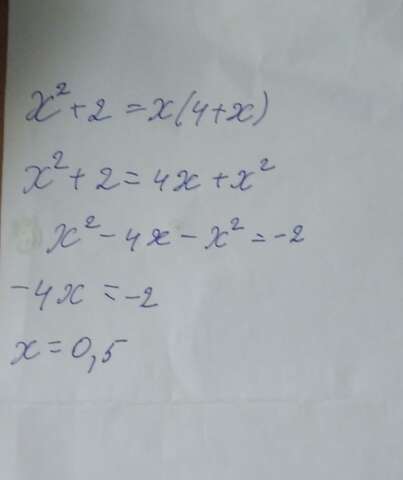 x² + 2 = x(4+x)
x² + 2 = 4x + x²
x² - 4x - x² = -2
-4x = -2
x = 0,5